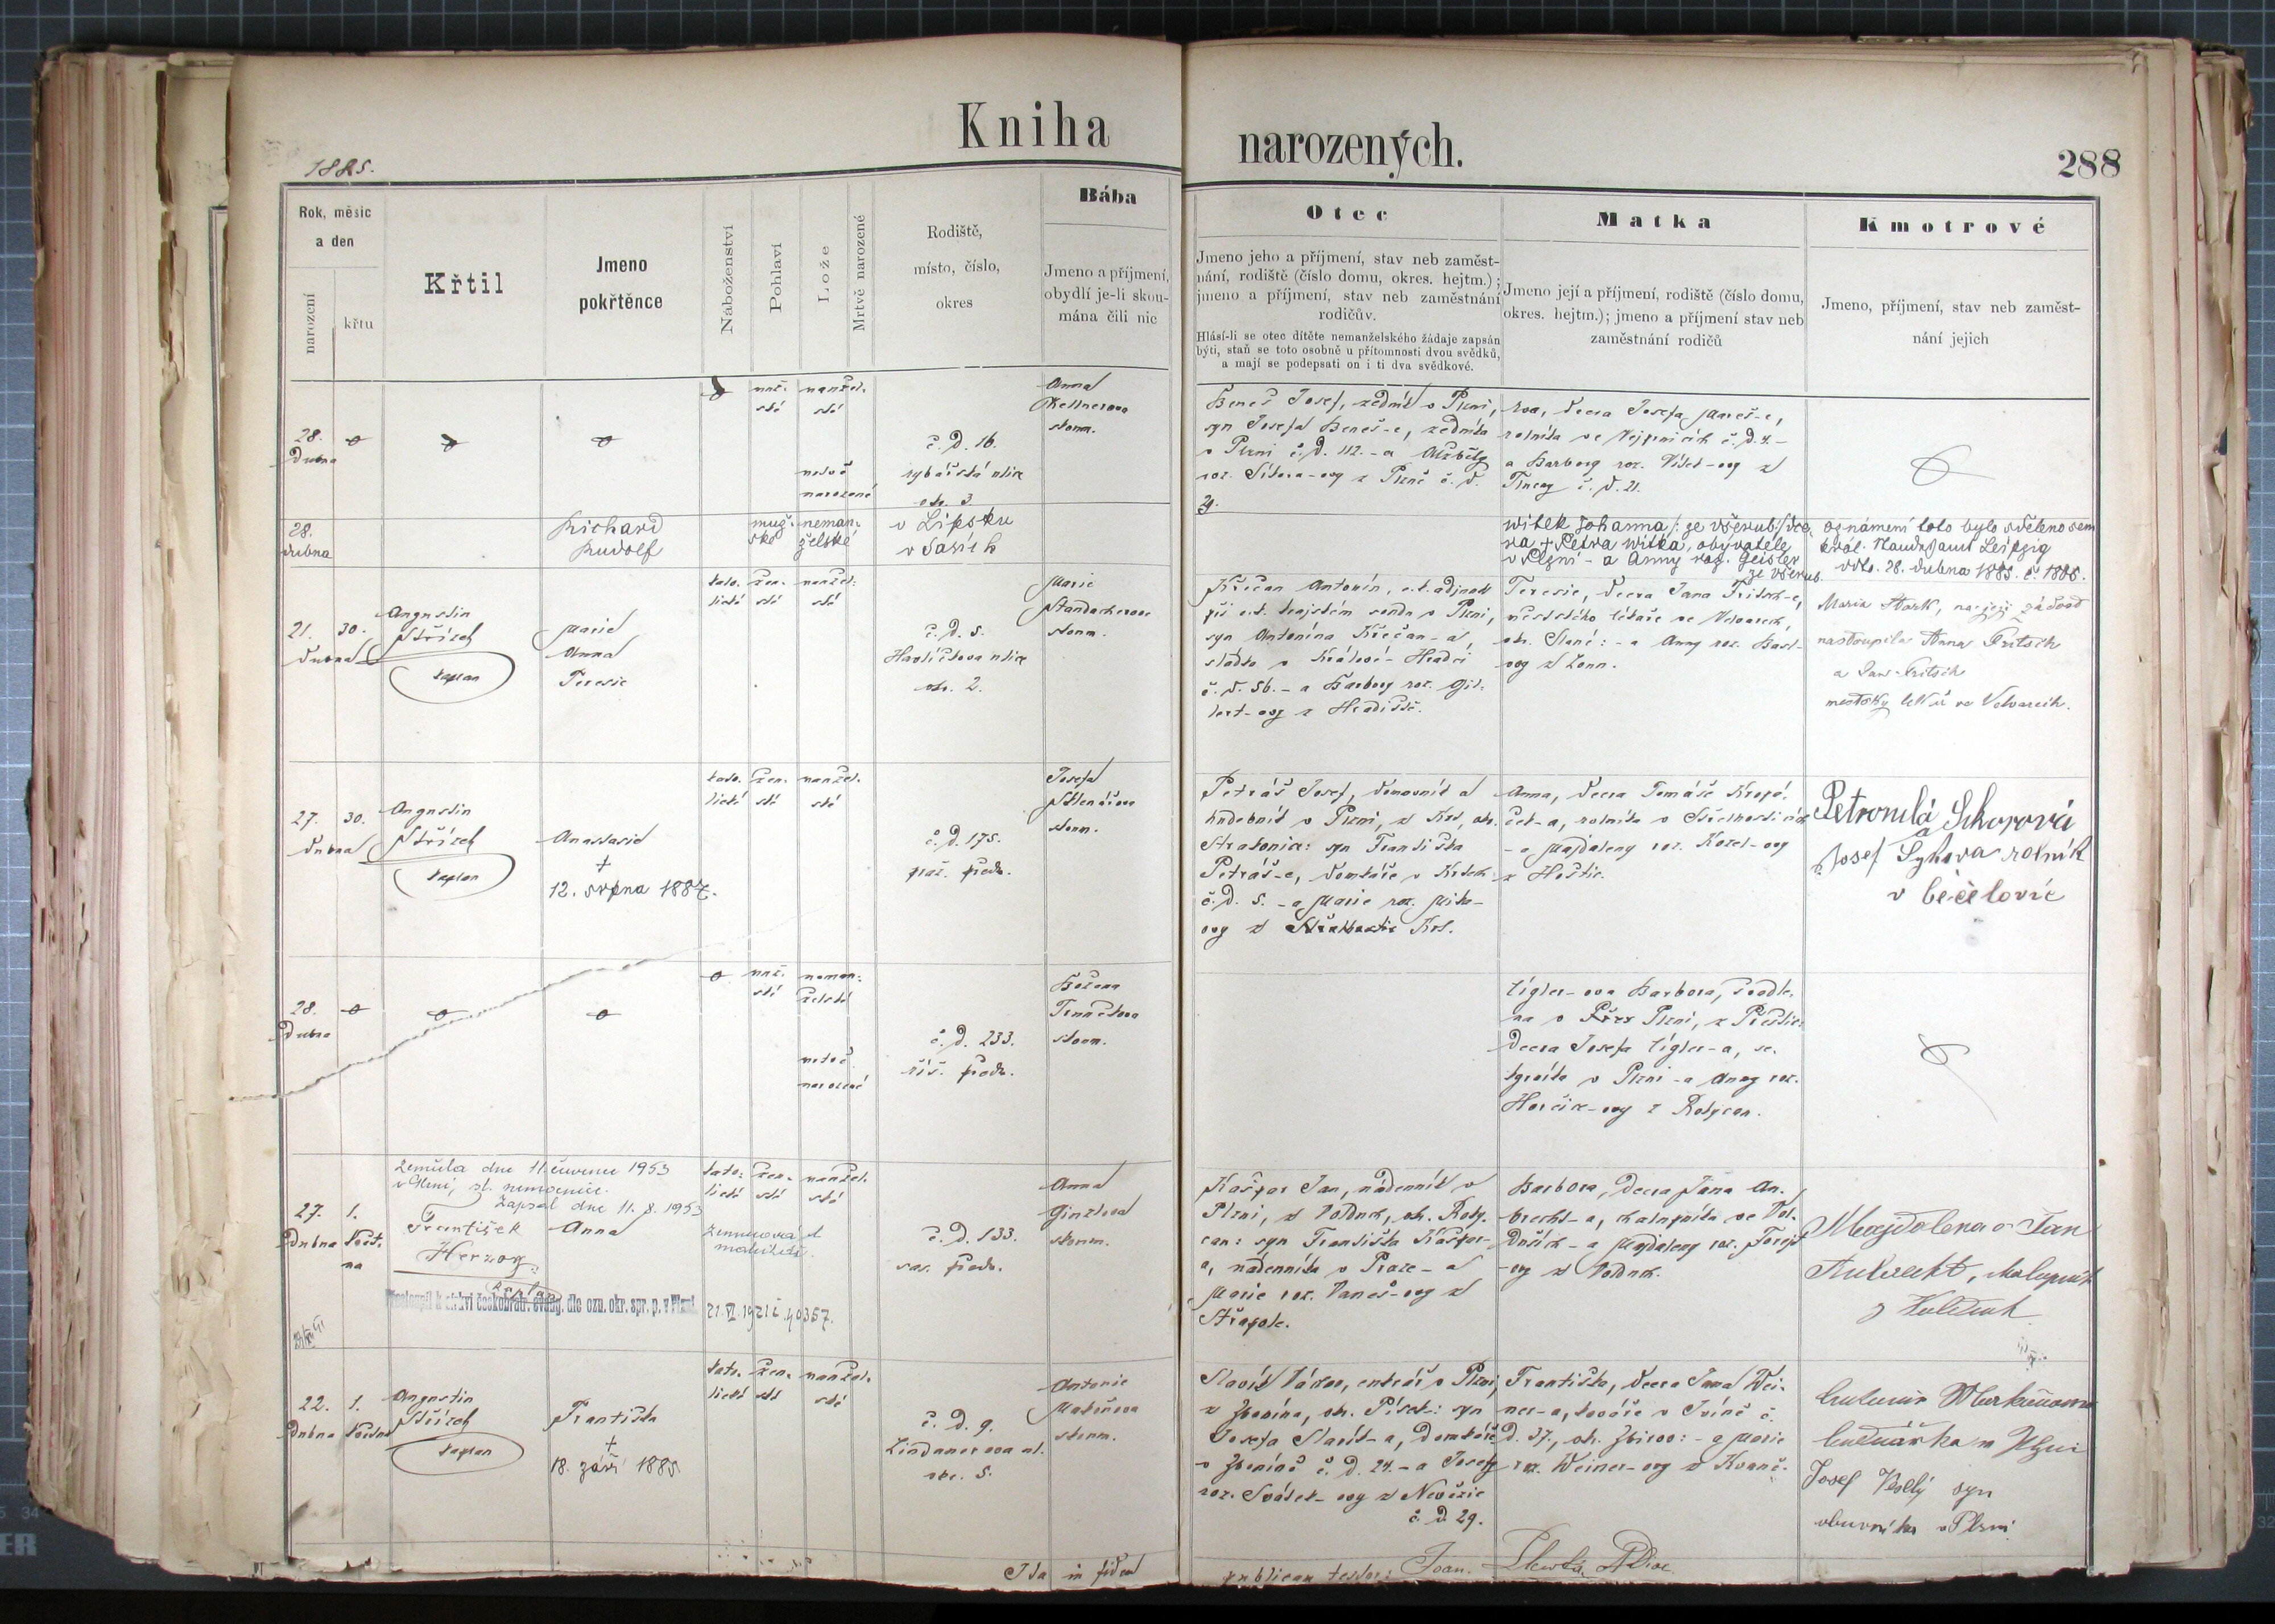 Kniha
narozených.
1885.
288
Rok, měsíc
a den
narození
křtu
Křtil
Jmeno
pokřtěnce
Náboženství
Pohlaví
Lože
Mrtvě narozené
Rodiště,
místo, číslo,
okres
Bába
Jmeno a příjmení,
obydlí je-li skou-
mána čili nic
Otec
Jmeno jeho a příjmení, stav neb zaměst-
nání, rodiště (číslo domu, okres. hejtm.);
jmeno a příjmení, stav neb zaměstnání
rodičův.
Hlásí-li se otec dítěte nemanželského žádaje zapsán
býti, staň se toto osobně u přítomnosti dvou svědků,
a mají se podepsati on i ti dva svědkové.
Matka
Jmeno její a příjmení, rodiště (číslo domu,
okres. hejtm.); jmeno a příjmení stav neb
zaměstnání rodičů
Kmotrové
Jmeno, příjmení, stav neb zaměst-
nání jejich
28.
Dubna
muž-
ské
manžel-
ské
mrtvě
narozené
č. D. 16.
rybářská ulice
obv. 3
Anna
Kellnerova
zkoum.
Beneš Josef, zedník v Plzni,
syn Josefa Beneš-e, zedníka
v Plzni č. D. 112. - a Alžběty
roz. Sýkora-ovy z Plzně č. d.
29.
dcera Josefa Mareš-e,
rolníka ve Vejprnicích č. D. 4. -
a Barbory roz. Vísek-ovy z
č. d. 21.
28.
dubna
Richard
Rudolf
muž-
ské
neman-
želské
v Lipsku
v Sasích
Witek Johanna /: ze Všerub :/ dce-
ra + Petra Witka, obyvatele
v Plzni - a Anny roz. Geisler
ze Všerub.
Oznámení toto bylo sděleno sem
král. Standesamt Leipzig
ddto. 28. dubna 1885. č. 1886.
21.
dubna
30.
Augustin
Střízek
kaplan
Marie
Anna
Teresie
kato-
lické
žen-
ské
manžel-
ské
č. D. 5.
Havlíčkova ulice
obv. 2.
Marie
Standacherova
zkoum.
Křečan Antonín, c. k. adjunkt
při c. k. krajském soudu v Plzni,
syn Antonína Křečan-a,
sládka v Králové-Hradci
č. d. 56. - a Barbory roz. Gil-
bert-ovy z Hradiště.
Teresie, dcera Jana Fritsch-e,
městského lékaře ve Velvarech,
okr. Slané: - a Anny roz. Bast-
ovy z Loun.
Maria Stark, na její závod
nastoupila Anna Fritsch
a Jan Fritsch
mestský lékař ve Velvarech.
27.
dubna
30.
Augustin
Střízek
kaplan
Anastasie
+
12. srpna 1887.
kato-
lické
žen-
ské
manžel-
ské
č. D. 175.
praž. předm.
Josefa
Sklenářova
zkoum.
Petráš Josef, domovník a
hudebník v Plzni, z Krt, okr.
Strakonice: syn Františka
Petráš-e, domkáře v Krtech
č. D. 5. - a Marie roz. Mika-
ovy z Krt.
Anna, dcera Tomáše Kropá-
ček-a, rolníka v Střelhosticích
- a Majdaleny roz. Kozel-ovy
z Hoštic.
Petronila Sikorová
a
Josef Sykora rolník
v
28.
Dubna
muž-
ské
neman-
želské
mrtvě
narozené
č. D. 233.
říš. předm.
Božena
Trnečkova
zkoum.
Cígler-ova Barbora, švadle-
na v Plzni, z Přeštic:
dcera Josefa Cígler-a,
v Plzni - a Anny roz.
Horčic-ovy z Rokycan.
27.
Dubna
1.
Květ-
na
Zemřela dne 11. července 1953
v Plzni, st. nemocnice.
Zapsal dne 11. 8. 1953
František
Herzog
kaplan
Přestoupil k církvi českobratr. evang. dle ozn. okr. spr. p. v Plzni 21. VI. 1921 č. 40357.
Anna
kato-
lické
žen-
ské
manžel-
ské
č. D. 133.
sas. předm.
Anna
Ginzlova
zkoum.
Kašpar Jan, nádenník v
Plzni, z Volduch, okr. Roky-
can: syn Františka Kašpar-
a, nádenníka v Praze - a
Marie roz. Vaneš-ovy z
Střapole.
Barbora, dcera Jana An-
brecht-a, chalupníka ve Vol-
duších - a Majdaleny roz. Forejt
-ovy z Volduch.
Magdalena a Jan
chalupník
z Volduch
22.
Dubna
1.
Května
Augustin
Střízek
kaplan
Františka
+
18. září 1885
kato-
lické
žen-
ské
manžel-
ské
č. D. 9.
Lindauerova ul.
obv. 5.
Antonie
Makušova
zkoum.
Slavík Václav, cukrář v Plzni,
z Zbonína, okr. Písek: syn
Josefa Slavík-a, domkáře
v Zboníně č. D. 24. - a Josefy
roz. Svátek-ovy z Nevězic
č. D. 29.
Františka, dcera Jana Wei-
ner-a, kováře v Svíně č.
D. 37., okr. Zbirov: - a Marie
roz. Weiner-ovy z
Antonie
v Plzni
Josef Veselý syn
obuvníka v Plzni
Ita in fidem
publicam testor: Joan.